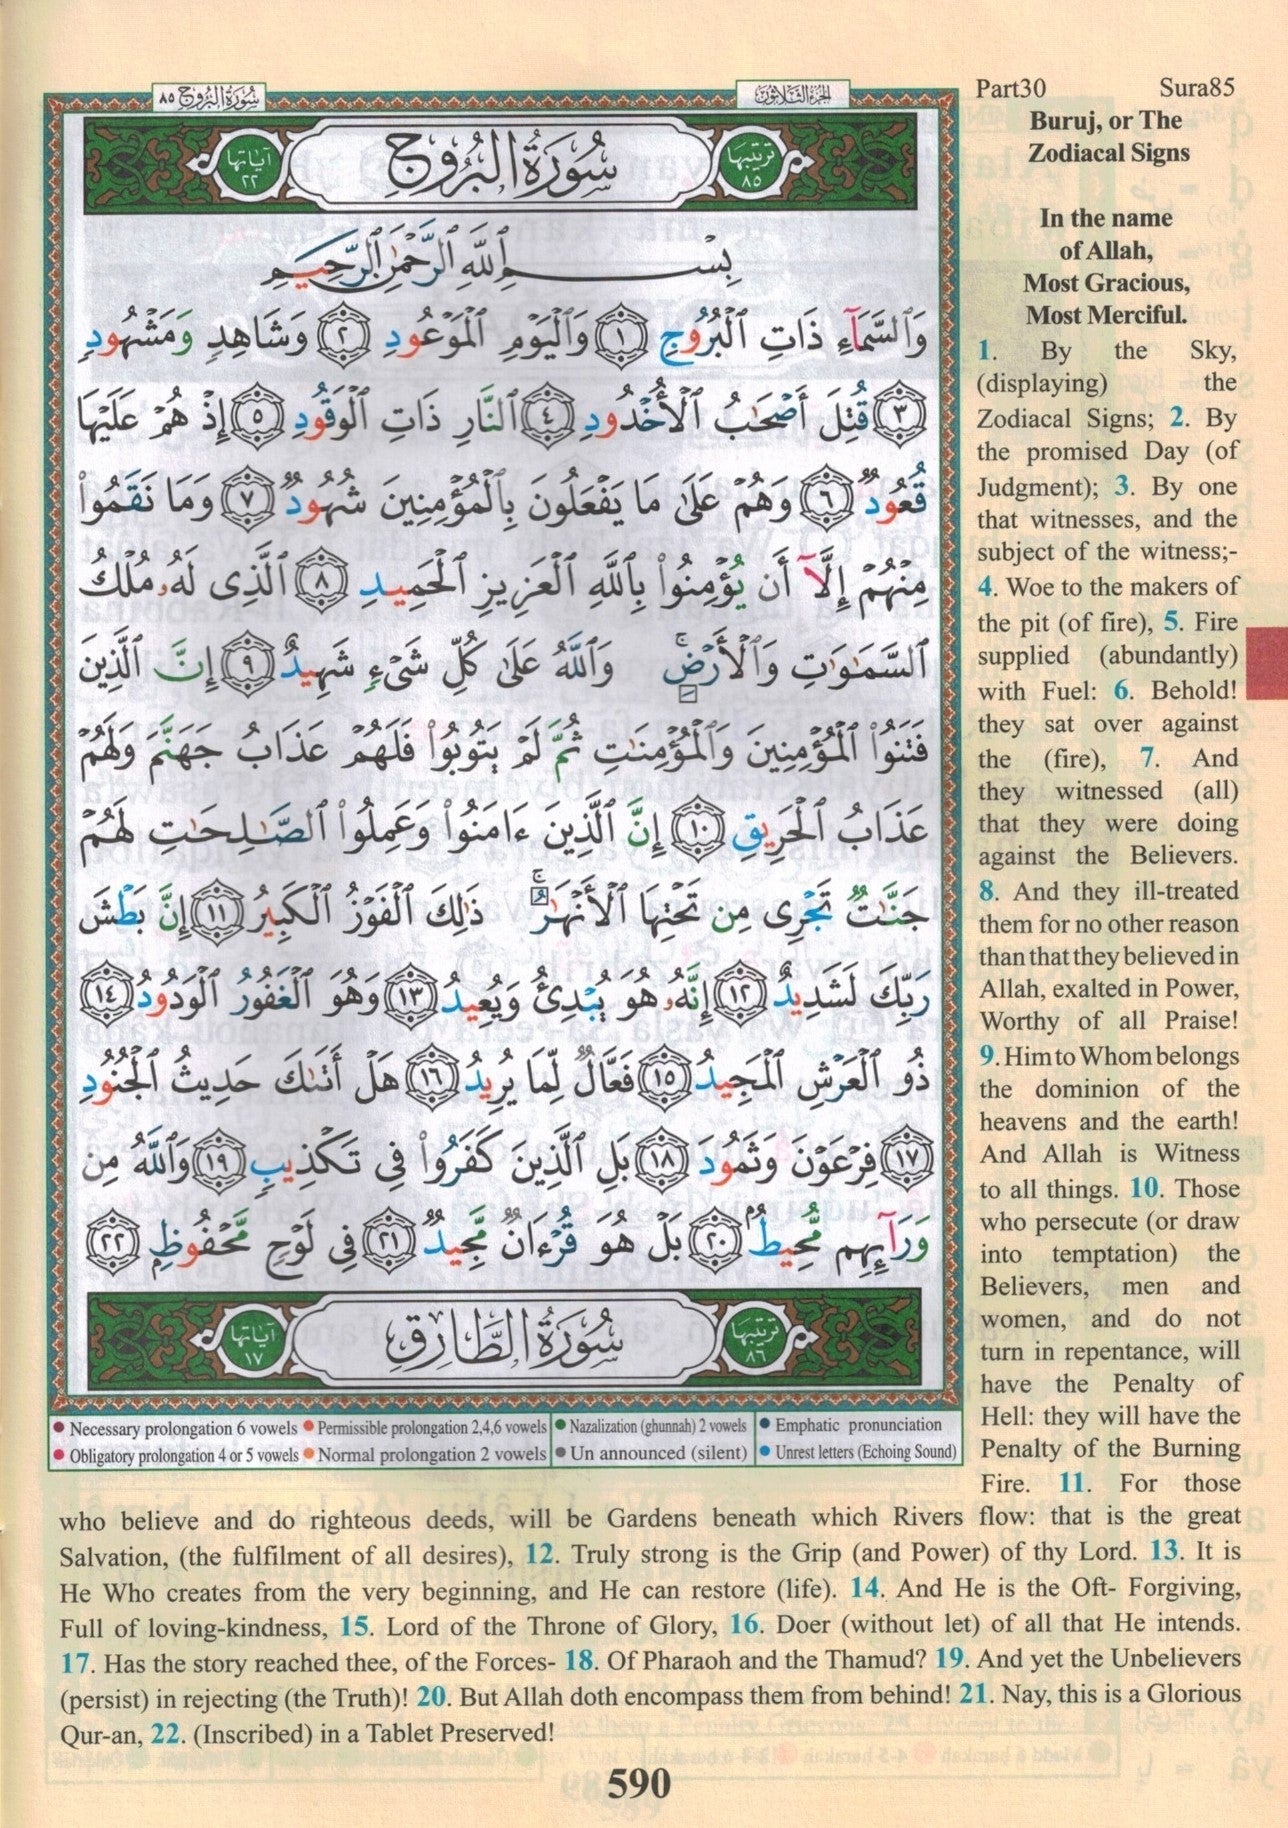 سُورَةُ البُرُوجِ ٨٥
الجُزْءُ الثَّلَاثُون
Part30 Sura85
سُورَةُ البُرُوجِ
ترتيبها ٨٥
آياتها ٢٢
بِسْمِ ٱللَّهِ ٱلرَّحْمَٰنِ ٱلرَّحِيمِ
وَٱلسَّمَآءِ ذَاتِ ٱلْبُرُوجِ ١ وَٱلْيَوْمِ ٱلْمَوْعُودِ ٢ وَشَاهِدٍ وَمَشْهُودٍ
٣ قُتِلَ أَصْحَٰبُ ٱلْأُخْدُودِ ٤ ٱلنَّارِ ذَاتِ ٱلْوَقُودِ ٥ إِذْ هُمْ عَلَيْهَا
قُعُودٌ ٦ وَهُمْ عَلَىٰ مَا يَفْعَلُونَ بِٱلْمُؤْمِنِينَ شُهُودٌ ٧ وَمَا نَقَمُوا۟
مِنْهُمْ إِلَّآ أَن يُؤْمِنُوا۟ بِٱللَّهِ ٱلْعَزِيزِ ٱلْحَمِيدِ ٨ ٱلَّذِى لَهُۥ مُلْكُ
ٱلسَّمَٰوَٰتِ وَٱلْأَرْضِ ۚ وَٱللَّهُ عَلَىٰ كُلِّ شَىْءٍ شَهِيدٌ ٩ إِنَّ ٱلَّذِينَ
فَتَنُوا۟ ٱلْمُؤْمِنِينَ وَٱلْمُؤْمِنَٰتِ ثُمَّ لَمْ يَتُوبُوا۟ فَلَهُمْ عَذَابُ جَهَنَّمَ وَلَهُمْ
عَذَابُ ٱلْحَرِيقِ ١٠ إِنَّ ٱلَّذِينَ ءَامَنُوا۟ وَعَمِلُوا۟ ٱلصَّٰلِحَٰتِ لَهُمْ
جَنَّٰتٌ تَجْرِى مِن تَحْتِهَا ٱلْأَنْهَٰرُ ۚ ذَٰلِكَ ٱلْفَوْزُ ٱلْكَبِيرُ ١١ إِنَّ بَطْشَ
رَبِّكَ لَشَدِيدٌ ١٢ إِنَّهُۥ هُوَ يُبْدِئُ وَيُعِيدُ ١٣ وَهُوَ ٱلْغَفُورُ ٱلْوَدُودُ ١٤
ذُو ٱلْعَرْشِ ٱلْمَجِيدُ ١٥ فَعَّالٌ لِّمَا يُرِيدُ ١٦ هَلْ أَتَىٰكَ حَدِيثُ ٱلْجُنُودِ
١٧ فِرْعَوْنَ وَثَمُودَ ١٨ بَلِ ٱلَّذِينَ كَفَرُوا۟ فِى تَكْذِيبٍ ١٩ وَٱللَّهُ مِن
وَرَآئِهِم مُّحِيطٌ ٢٠ بَلْ هُوَ قُرْءَانٌ مَّجِيدٌ ٢١ فِى لَوْحٍ مَّحْفُوظٍ ٢٢
سُورَةُ الطَّارِقِ
ترتيبها ٨٦
آياتها ١٧
Necessary prolongation 6 vowels Permissible prolongation 2,4,6 vowels Nazalization (ghunnah) 2 vowels Emphatic pronunciation
Obligatory prolongation 4 or 5 vowels Normal prolongation 2 vowels Un announced (silent) Unrest letters (Echoing Sound)
Buruj, or The
Zodiacal Signs
In the name
of Allah,
Most Gracious,
Most Merciful.
1. By the Sky,
(displaying) the
Zodiacal Signs; 2. By
the promised Day (of
Judgment); 3. By one
that witnesses, and the
subject of the witness;-
4. Woe to the makers of
the pit (of fire), 5. Fire
supplied (abundantly)
with Fuel: 6. Behold!
they sat over against
the (fire), 7. And
they witnessed (all)
that they were doing
against the Believers.
8. And they ill-treated
them for no other reason
than that they believed in
Allah, exalted in Power,
Worthy of all Praise!
9. Him to Whom belongs
the dominion of the
heavens and the earth!
And Allah is Witness
to all things. 10. Those
who persecute (or draw
into temptation) the
Believers, men and
women, and do not
turn in repentance, will
have the Penalty of
Hell: they will have the
Penalty of the Burning
Fire. 11. For those
who believe and do righteous deeds, will be Gardens beneath which Rivers flow: that is the great
Salvation, (the fulfilment of all desires), 12. Truly strong is the Grip (and Power) of thy Lord. 13. It is
He Who creates from the very beginning, and He can restore (life). 14. And He is the Oft- Forgiving,
Full of loving-kindness, 15. Lord of the Throne of Glory, 16. Doer (without let) of all that He intends.
17. Has the story reached thee, of the Forces- 18. Of Pharaoh and the Thamud? 19. And yet the Unbelievers
(persist) in rejecting (the Truth)! 20. But Allah doth encompass them from behind! 21. Nay, this is a Glorious
Qur-an, 22. (Inscribed) in a Tablet Preserved!
590